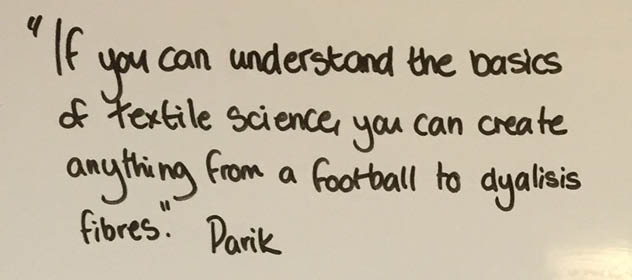 "If you can understand the basics
of textile science, you can create
anything from a football to dyalisis
fibres." Darik